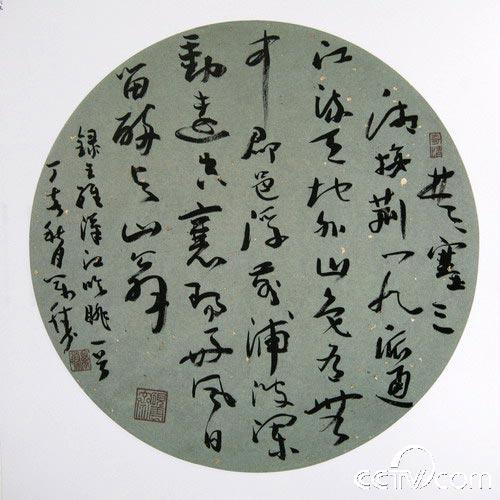 楚塞三
湘接荆门九派通
江流天地外山色有无
中郡邑浮前浦波澜
動遠空襄陽好风日
留醉与山翁
録王維漢江临眺一首
丁亥秋月
CCTV.com